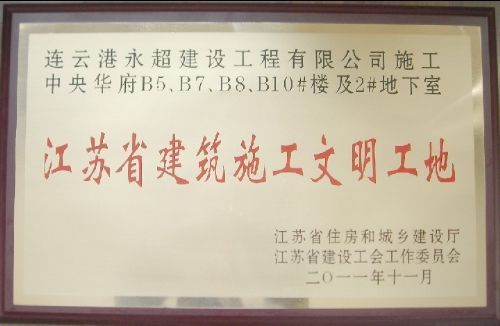 连云港永超建设工程有限公司施工
中央华府B5、B7、B8、B10#楼及2#地下室
江苏省建筑施工文明工地
江苏省住房和城乡建设厅
江苏省建设工会工作委员会
二〇一一年十一月